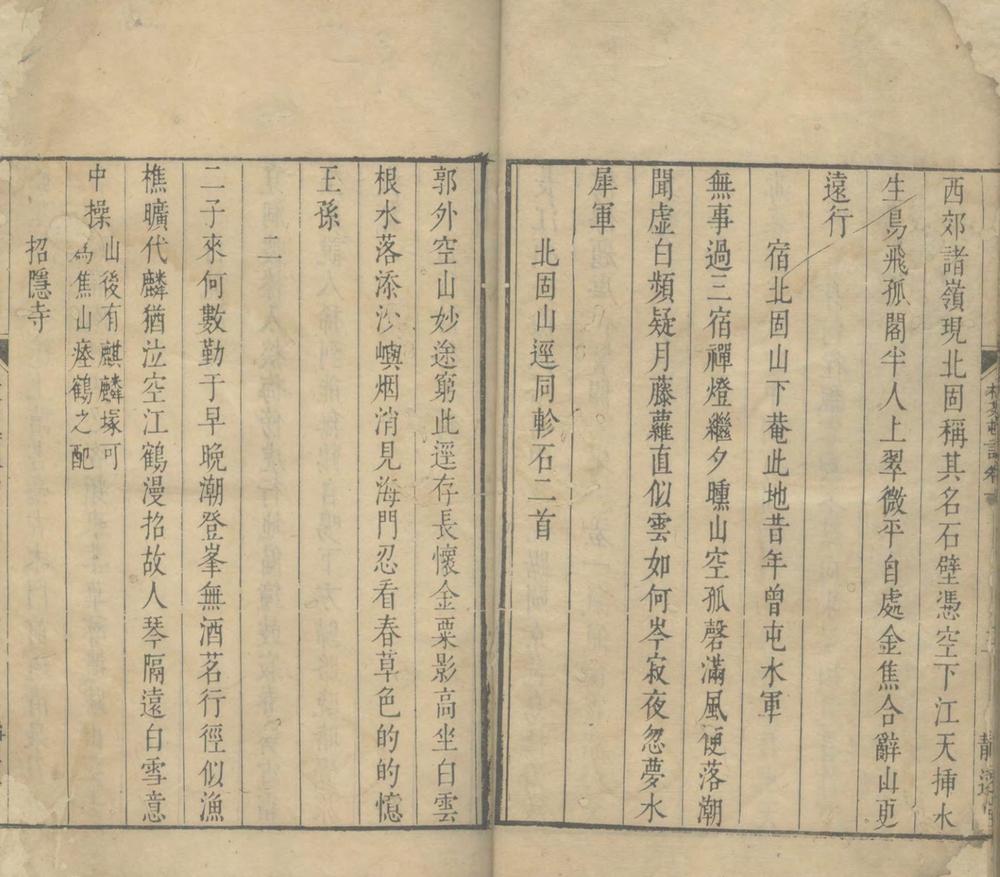 西郊諸嶺現北固稱其名石壁憑空下江天挿水
生鳥飛孤閣半人上翠微平自處金焦合辭山更
遠行
宿北固山下菴此地昔年曾屯水軍
無事過三宿禪燈繼夕曛山空孤磬滿風便落潮
聞虛白頻疑月藤蘿直似雲如何岑寂夜忽夢水
犀軍
北固山逕同軫石二首
郭外空山妙途窮此逕存長懷金粟影高坐白雲
根水落添沙嶼烟消見海門忍看春草色的的憶
王孫
二
二子來何數勤于早晚潮登峯無酒茗行徑似漁
樵曠代麟猶泣空江鶴漫招故人琴隔遠白雪意
中操
山後有麒麟塚可
為焦山瘗鶴之配
招隱寺